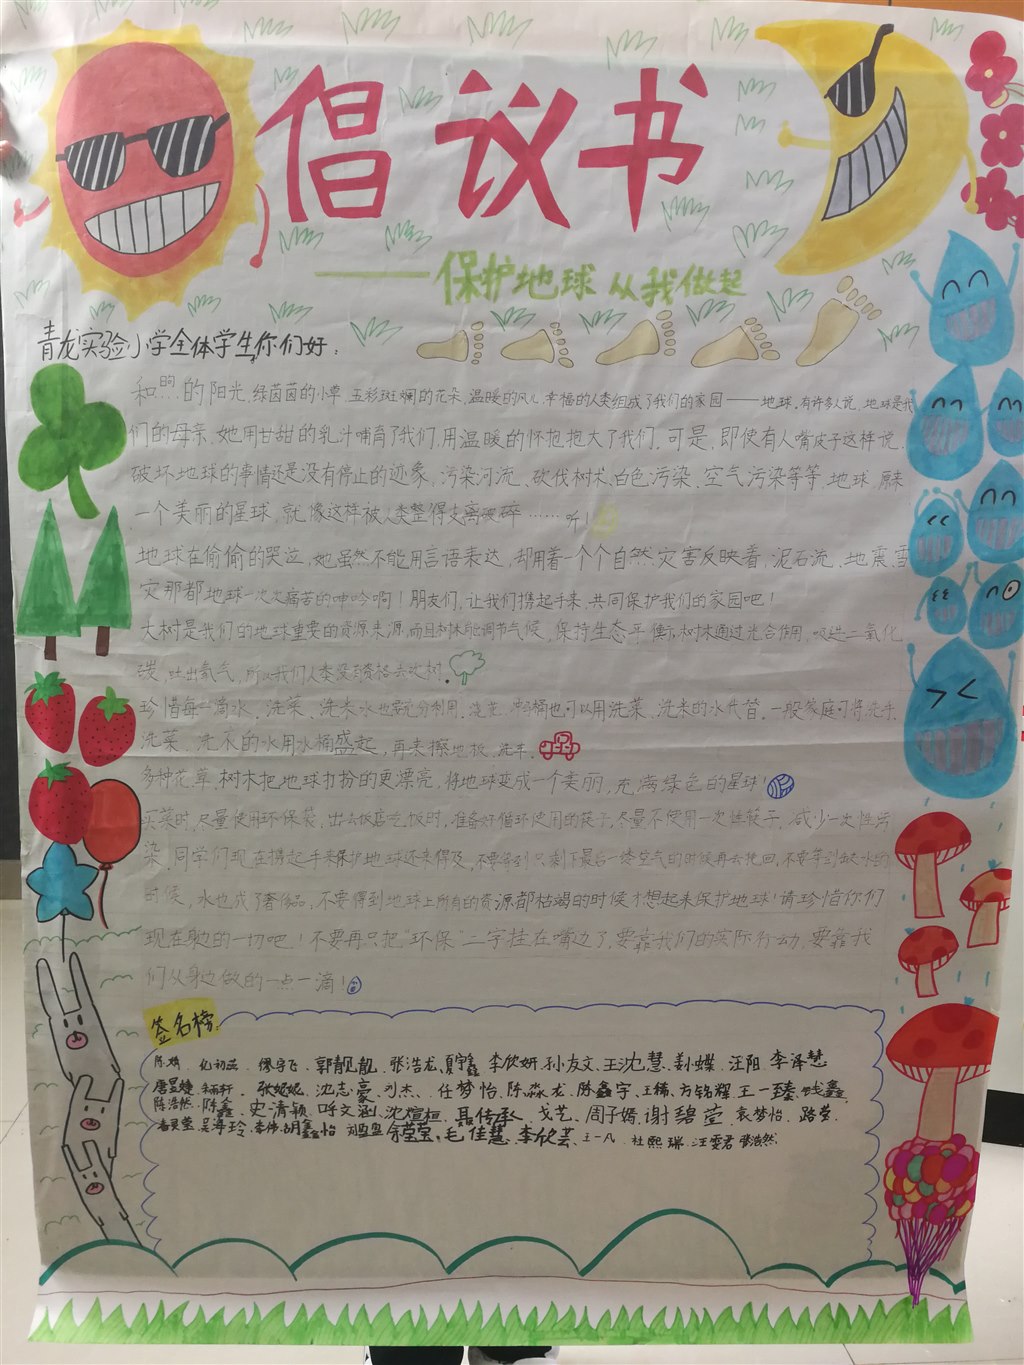 倡议书
——保护地球 从我做起
青龙实验小学全体学生你们好：
和煦的阳光,绿茵茵的小草 五彩斑斓的花朵,温暖的风儿 幸福的人类组成了我们的家园——地球。有许多人说,地球是我
们的母亲,她用甘甜的乳汁哺育了我们,用温暖的怀抱抱大了我们,可是,即使有人嘴皮子这样说,
破坏地球的事情还是没有停止的迹象,污染河流、砍伐树木,白色污染、空气污染等等,地球,原来
一个美丽的星球,就像这样被人类整得支离破碎……听!
地球在偷偷的哭泣,她虽然不能用言语表达,却用着一个个自然灾害反映着,泥石流,地震,雪
灾那都地球一次次痛苦的呻吟啊!朋友们,让我们携起手来,共同保护我们的家园吧!
大树是我们的地球重要的资源来源,而且树木能调节气候,保持生态平衡,树木通过光合作用,吸进二氧化
碳,吐出氧气,所以我们人类没有资格去砍树。
珍惜每一滴水,洗菜、洗米水也要充分利用,浇花、冲马桶也可以用洗菜、洗米的水代替,一般家庭可将洗手、
洗菜、洗衣的水用水桶盛起,再来擦地板、洗车。
多种花草树木把地球打扮的更漂亮,将地球变成一个美丽,充满绿色的星球!
买菜时,尽量使用环保袋,出去饭店吃饭时,准备好循环使用的筷子,尽量不使用一次性筷子,减少一次性污
染,同学们现在携起手来保护地球还来得及,不要等到只剩下最后一缕空气的时候再去挽回,不要等到缺水的
时候,水也成了奢侈品,不要得到地球上所有的资源都枯竭的时候才想起来保护地球!请珍惜你们
现在身边的一切吧!不要再只把“环保”二字挂在嘴边了,要靠我们的实际行动,要靠我
们从身边做的一点一滴!
签名榜:
郭靓靓、张浩龙、夏宇鑫 李欣妍 孙友文、王沈慧、姜蝶、汪阳、李泽慧
张妮妮、沈志豪、刘杰、任梦怡、陈淼龙、滕鑫宇、王稀、方铭辉 王一臻、
陈浩然、陈鑫、史清颖 叶文涵、沈煊桓、聂传承、戈艺、周子嫣、谢碧萱、袁梦怡、路莹、
吴海玲、李伟、胡鑫怡 余莹莹、毛佳慧、李欣芸、王一凡、杜熙琳、汪雯君